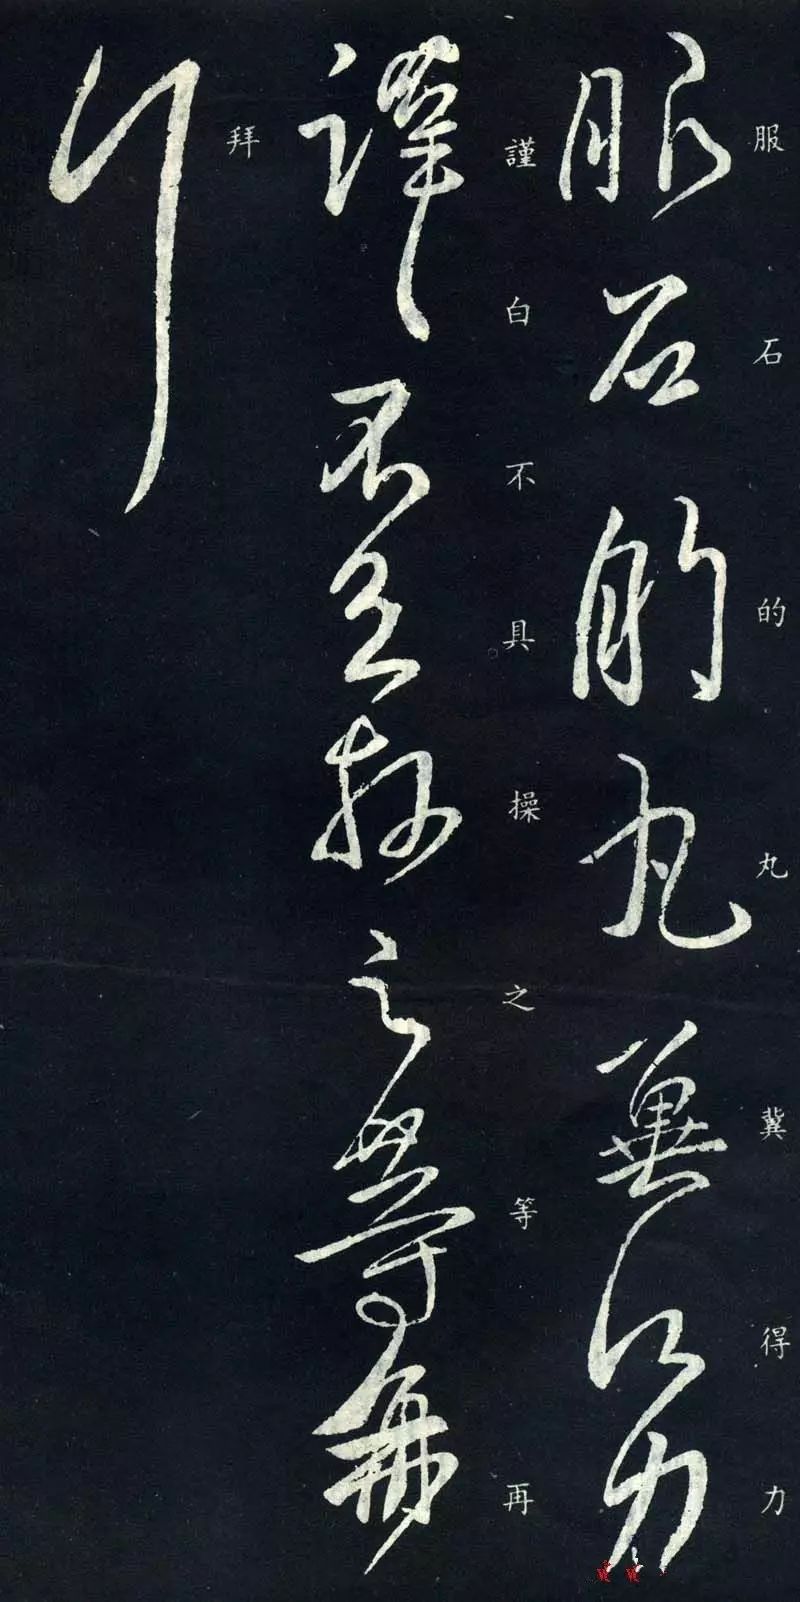 服石的丸冀得力
謹白不具操之等再
拜